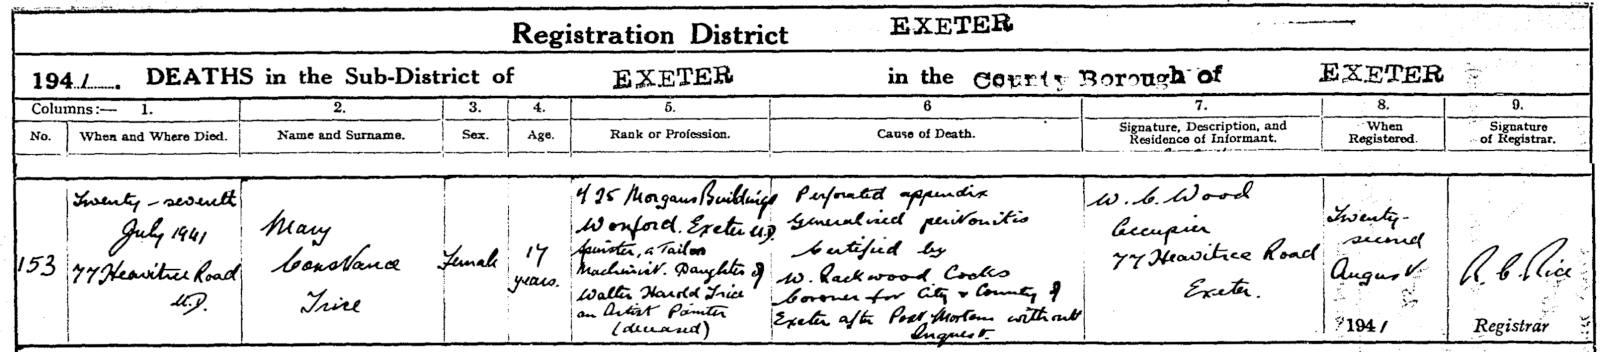 Registration District EXETER
1941. DEATHS in the Sub-District of EXETER in the County Borough of EXETER
Columns:— 1. 2. 3. 4. 5. 6 7. 8. 9.
No. When and Where Died. Name and Surname. Sex. Age. Rank or Profession. Cause of Death. Signature, Description, and Residence of Informant. When Registered. Signature of Registrar.
153
Twenty-seventh
July 1941
77 Heavitree Road
U.D.
Mary
Constance
Trice
Female
17
years.
of 25 Morgans Buildings
Wonford. Exeter U.D.
Spinster, a Tailor
Machinist. Daughter of
Walter Harold Trice
an Artist Painter
(deceased)
Perforated appendix
Generalised peritonitis
Certified by
W. Rackwood Cocks
Coroner for City & County of
Exeter after Post Mortem without
Inquest.
W. C. Wood
Occupier
77 Heavitree Road
Exeter.
Twenty-
second
August
1941
R. C. Rice
Registrar